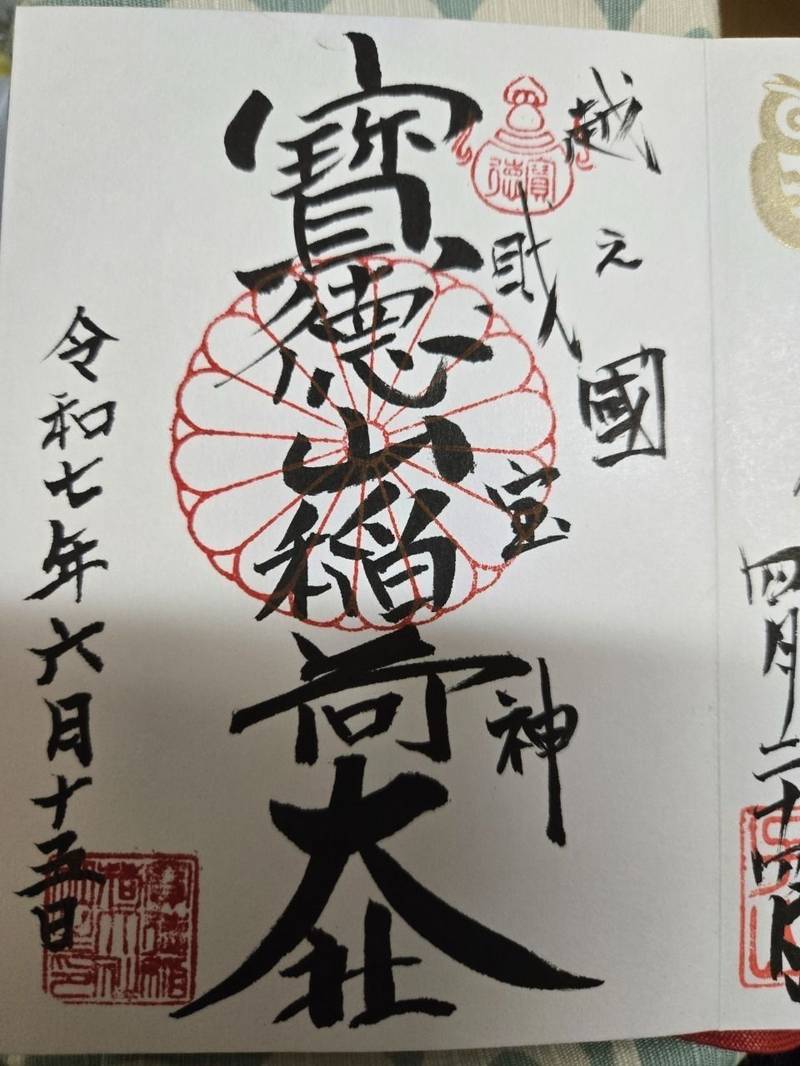 越之國
財宝神
寶徳
寶徳山稲荷大社
令和七年六月十五日
四月二十四日